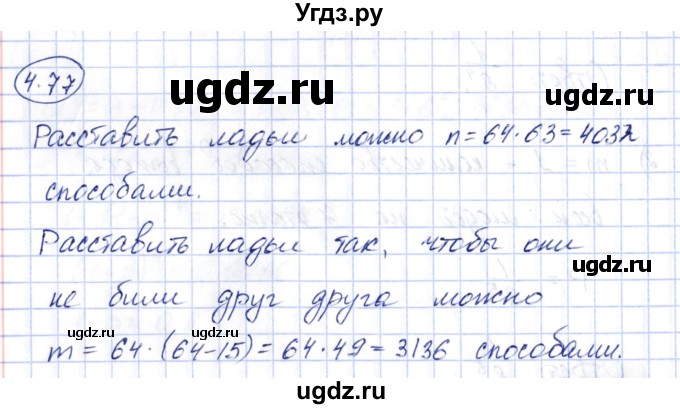 Угдз.ру
4.77
ugdz.ru
Расставить ладьи можно n = 64 · 63 = 4032
ugdz.ru
способами.
Расставить ладьи так, чтобы они
ugdz.ru
не били друг друга можно
ugdz.ru ugdz.ru
m = 64 · (64-15) = 64 · 49 = 3136 способами.
ugdz.ru